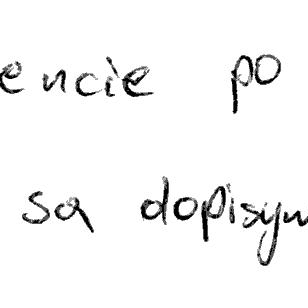 encie po
są dopisyw